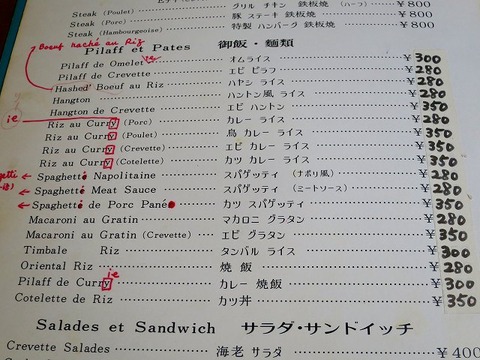 Steak (Poulet) グリル チキン 鉄板焼 (ハーフ) ¥800
Steak (Porc) 豚 ステーキ 鉄板焼 ¥800
Steak (Hambourgeoise) 特製 ハンバーグ 鉄板焼 ¥800
Boeuf haché au Riz
Pilaff et Pates 御飯・麺類
Pilaff de Omelet te オムライス ¥300
Pilaff de Crevette エビ ピラフ ¥280
Hashed' Boeuf au Riz ハヤシ ライス ¥280
Hangton ハントン風 ライス ¥280
Hangton de Crevette エビ ハントン ¥350
ie
Riz au Curry (Porc) カレー ライス ¥280
Riz au Curry (Poulet) 鳥 カレー ライス ¥350
Riz au Curry (Crevette) エビ カレー ライス ¥350
Riz au Curry (Cotelette) カツ カレー ライス ¥350
Spaghetti Napolitaine スパゲッティ (ナポリ風) ¥280
Spaghetti Meat Sauce スパゲッティ (ミートソース) ¥280
Spaghetti de Porc Pané カツ スパゲッティ ¥350
Macaroni au Gratin マカロニ グラタン ¥280
Macaroni au Gratin (Crevette) エビ グラタン ¥350
Timbale Riz タンバル ライス ¥300
Oriental Riz 焼 飯 ¥280
ie
Pilaff de Curry カレー 焼飯 ¥300
Cotelette de Riz カツ丼 ¥350
Salades et Sandwich サラダ・サンドイッチ
Crevette Salades 海老 サラダ ¥400